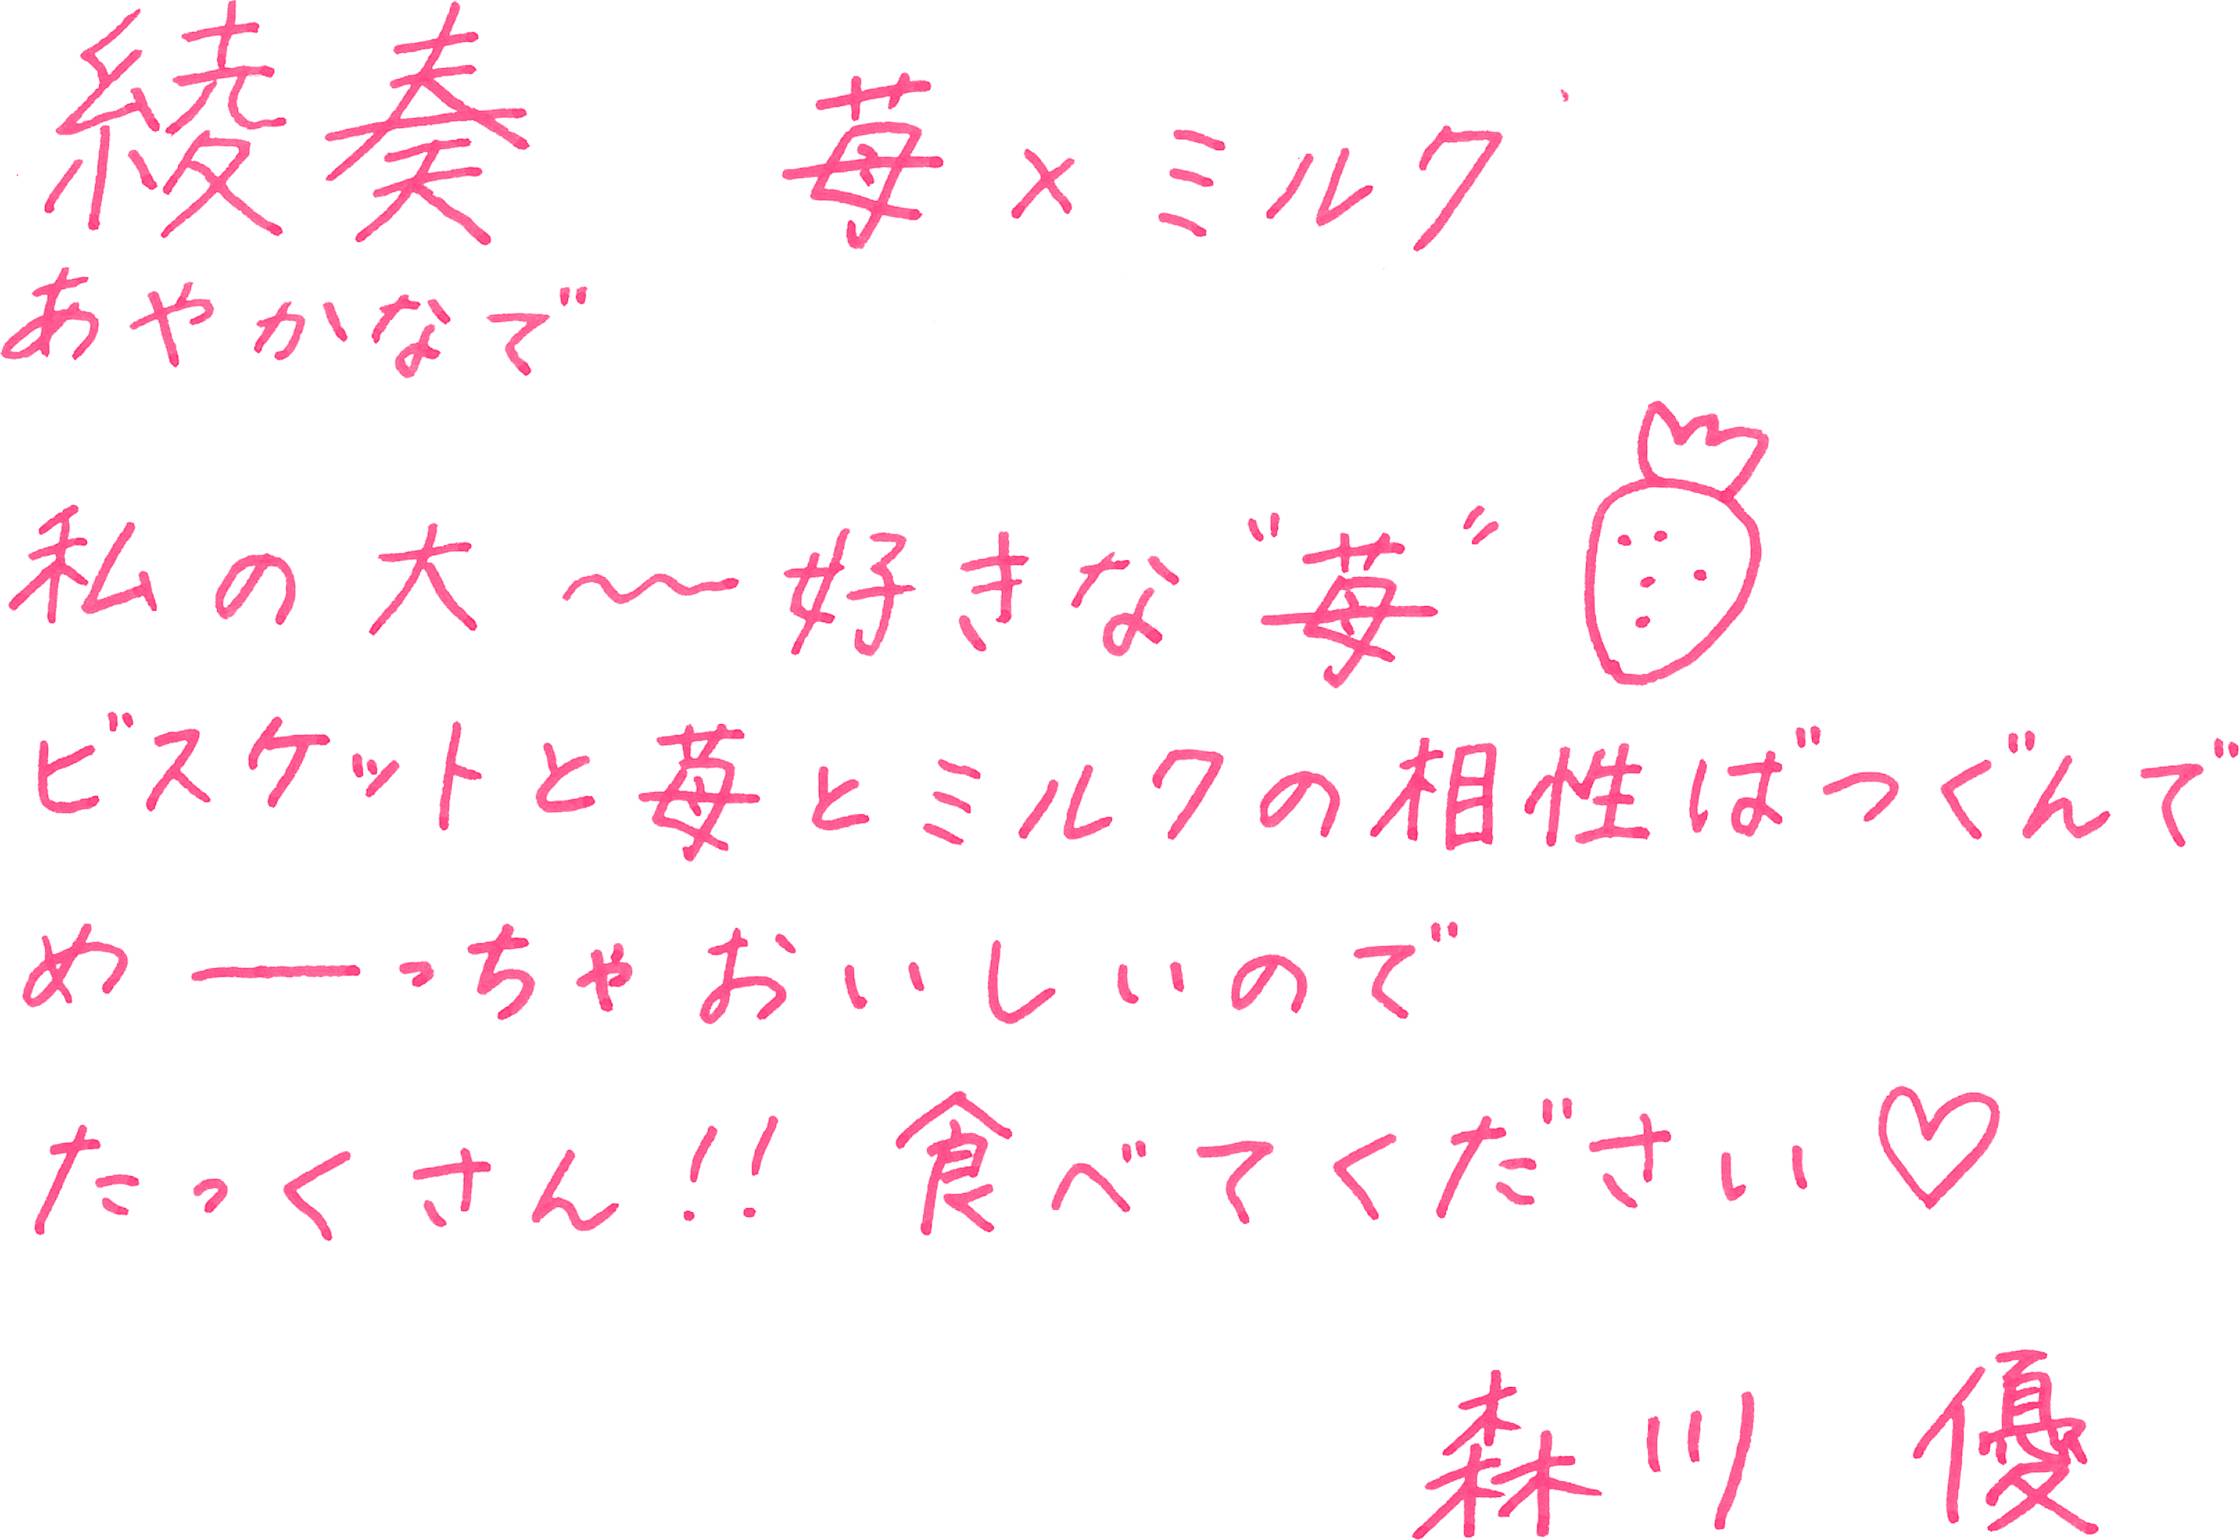 綾奏 苺×ミルク
あやかなで
私の大〜〜好きな"苺"
ビスケットと苺とミルクの相性ばつぐんで
めーっちゃおいしいので
たっくさん!!食べてください♡
森川 優